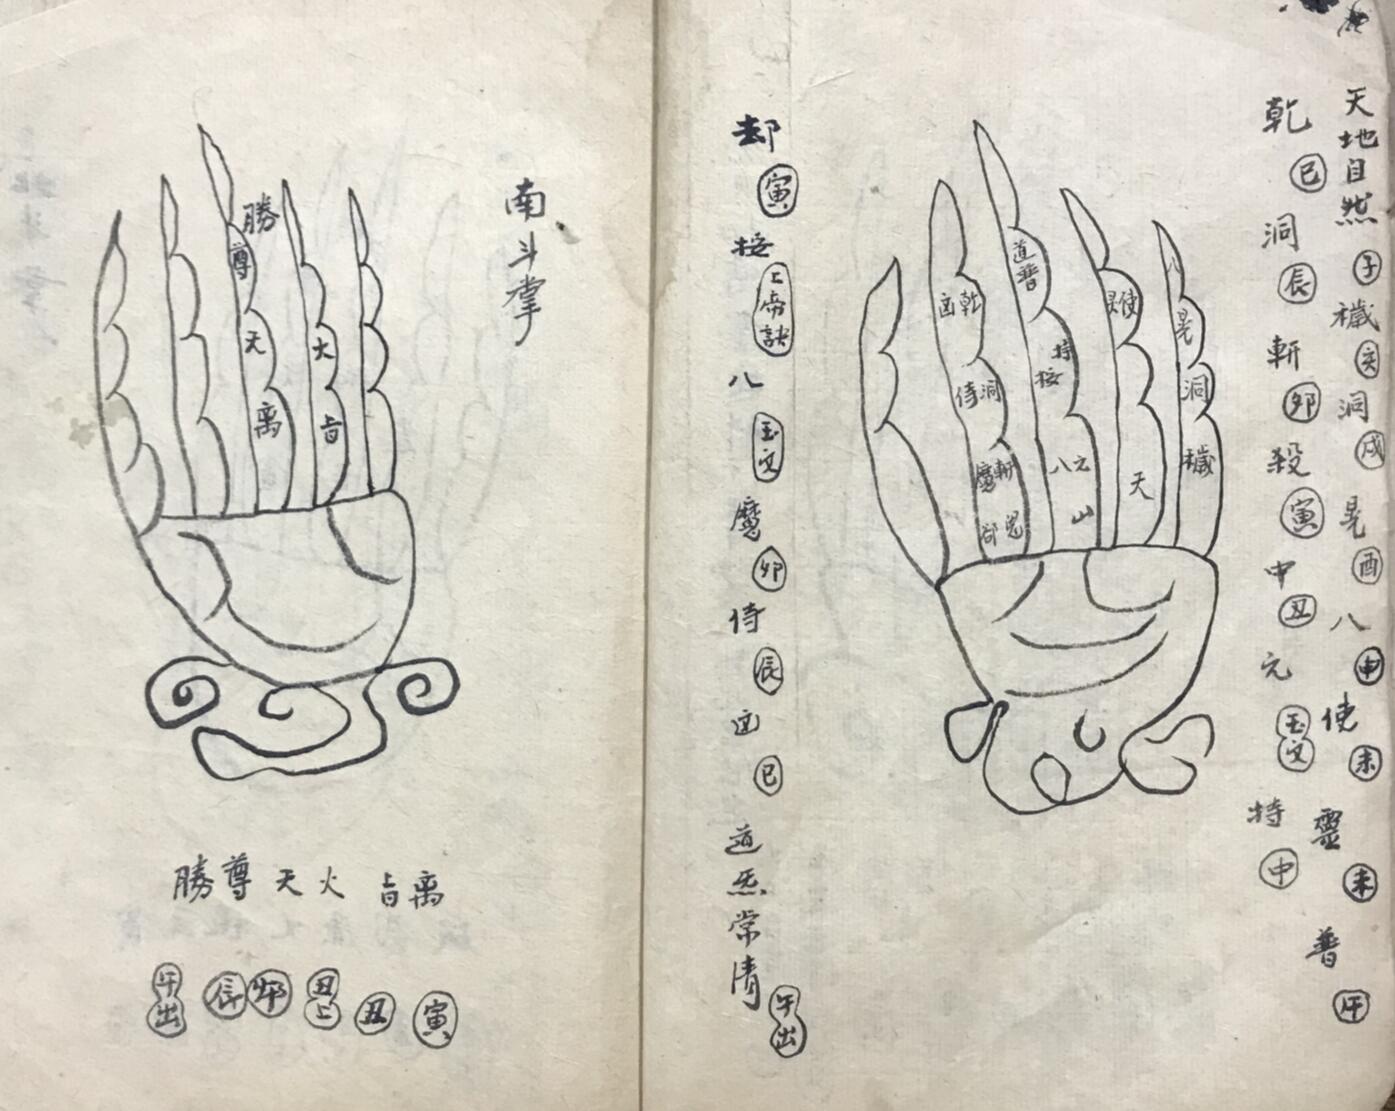 天地自然㊀子 穢 亥 洞 戌 晃 酉 八 申 使 未 靈 未 普 午
乾 巳 洞 辰 斬 卯 殺 寅 中 丑 元 玉文 特 中
却 寅 按 上帝訣 八 玉文 魔 卯 侍 辰 巫 巳 道炁常清 午出
道普
乾
特
按
洞
侍
斬
魔
元
八
山
使
天
晃
洞
穢
南斗掌
勝
尊
天
离
火
勝 尊 天 火 离
午出 辰 卯 丑上 丑 寅